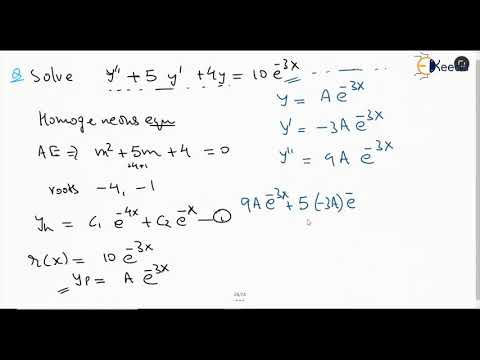 Q Solve y" + 5 y' + 4y = 10 e^-3x
Homogeneous eqn
AE => m² + 5m + 4 = 0
+4+1
roots -4, -1
yh = c1 e^-4x + c2 e^-x — 1
r(x) = 10 e^-3x
yp = A e^-3x
y = A e^-3x
y' = -3A e^-3x
y" = 9A e^-3x
9A e^-3x + 5 (-3A) e^-